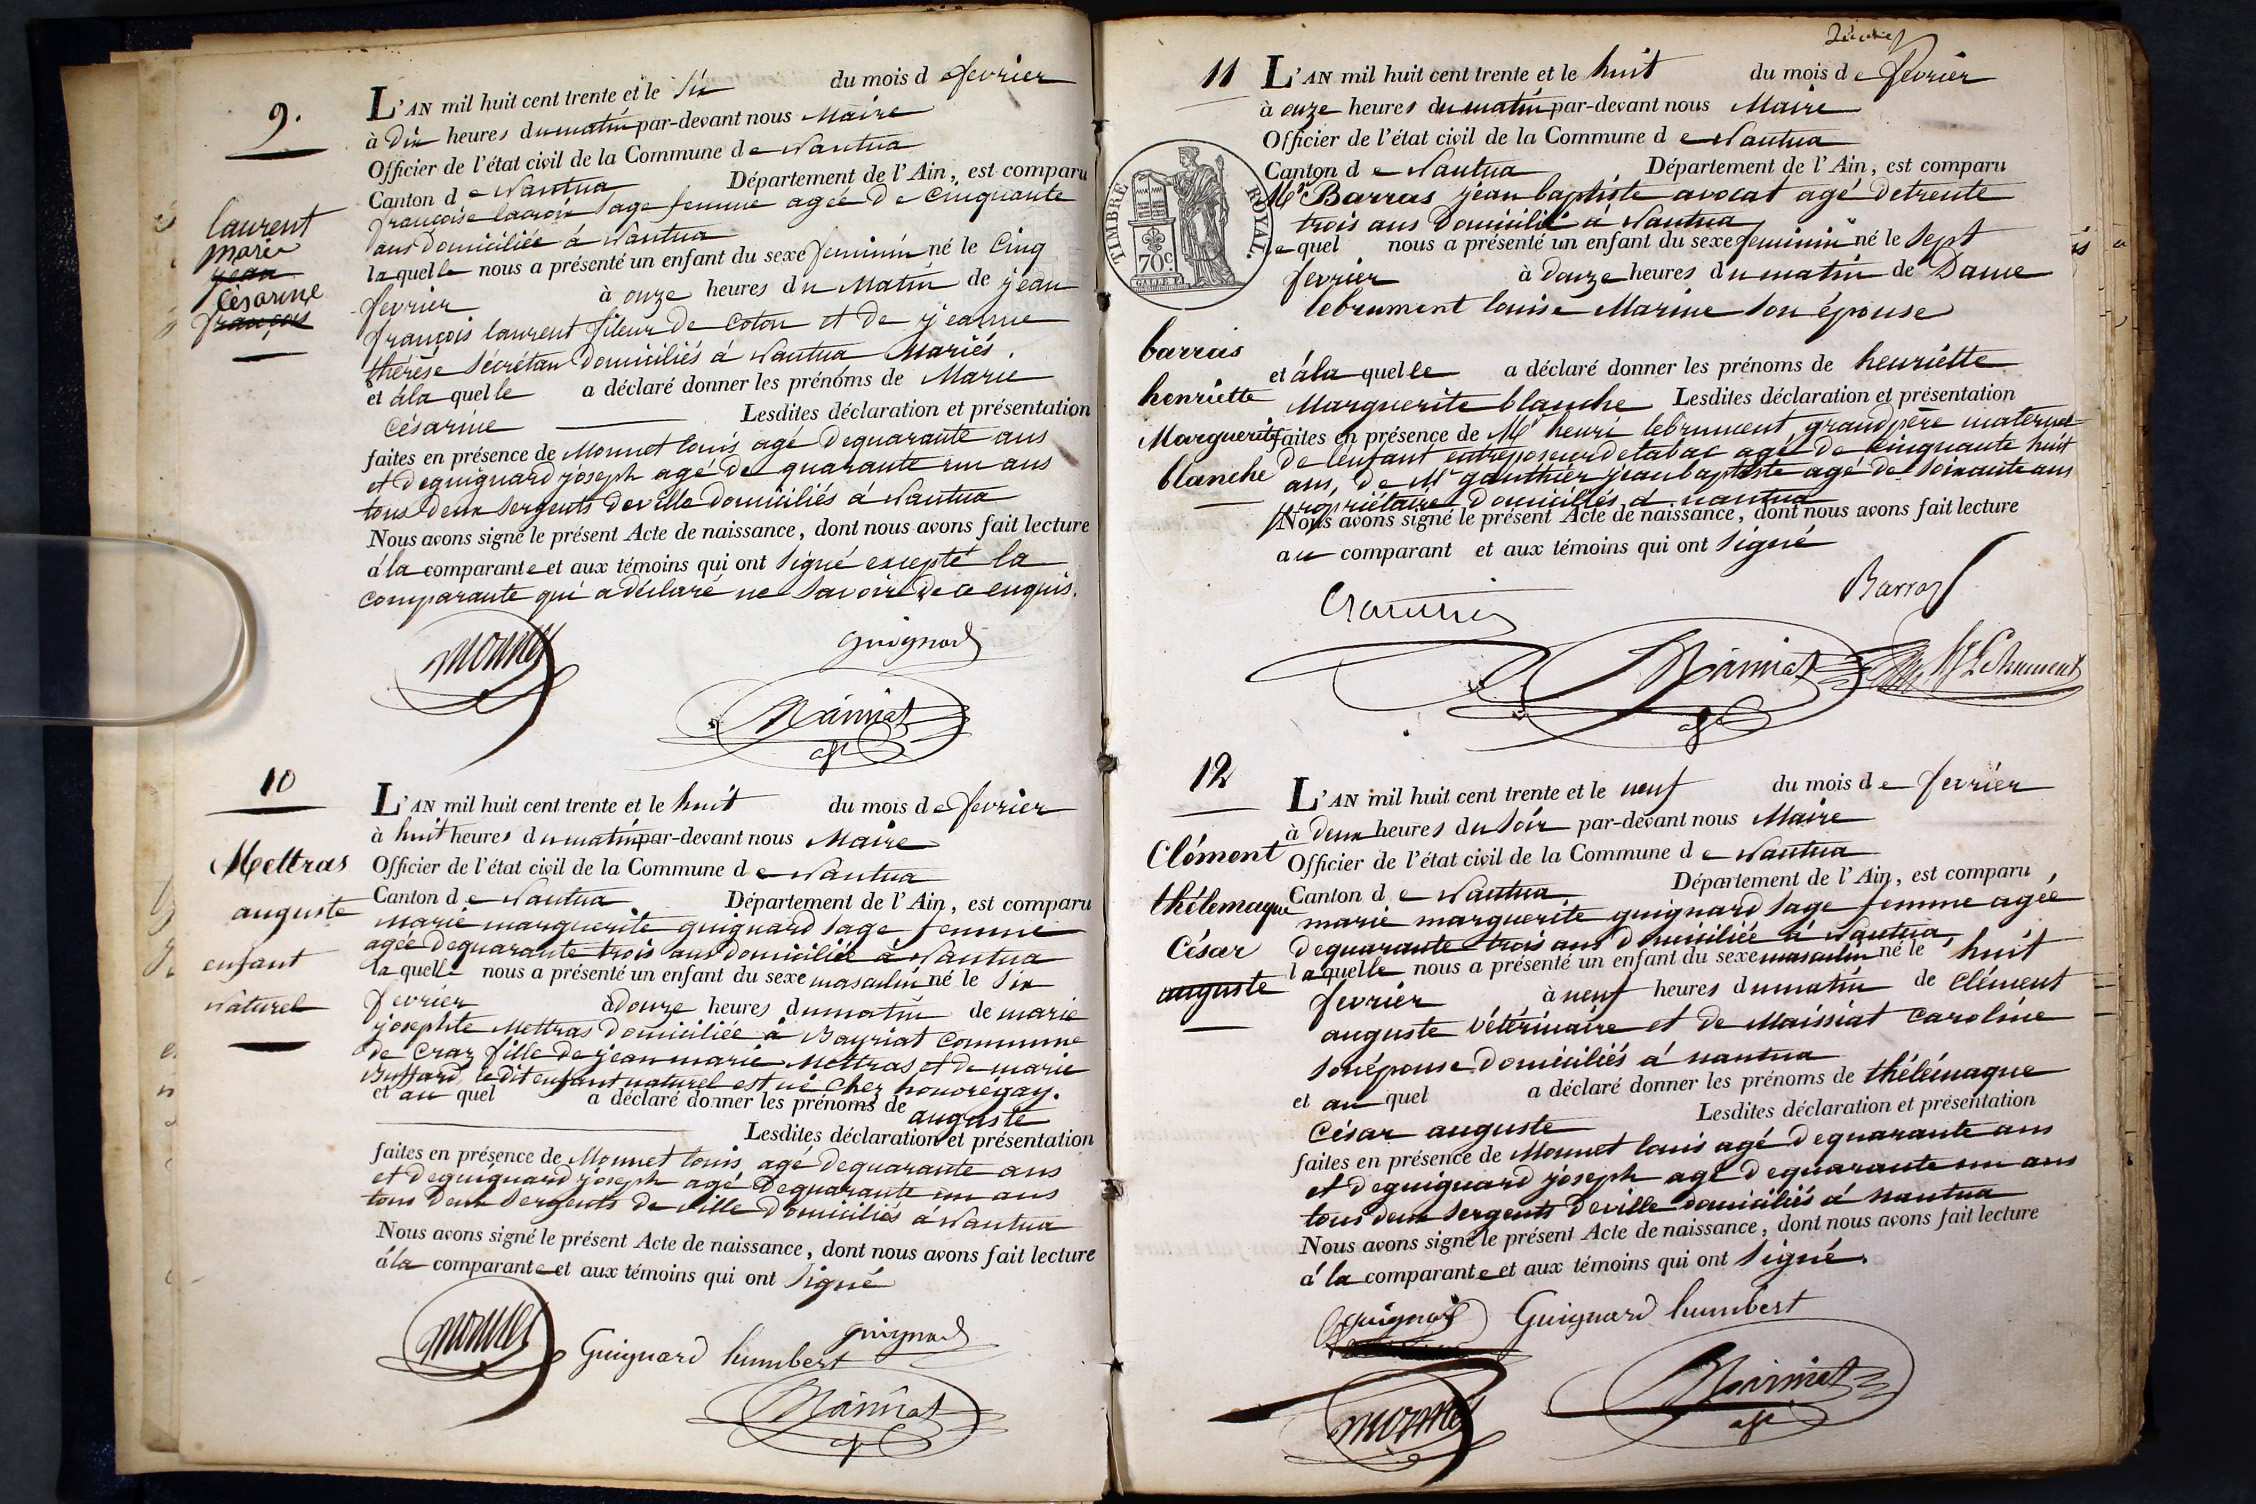 9.
laurent
marie
jean
Césarine
françois
L'AN mil huit cent trente et le six du mois de fevrier
à dix heures du matin par-devant nous Maire
Officier de l'état civil de la Commune de Nantua
Canton de Nantua Département de l'Ain, est comparu
françoise lacroix sage femme agée de Cinquante
ans domiciliée à Nantua
laquelle nous a présenté un enfant du sexe feminin né le Cinq
fevrier à onze heures du Matin de jean
françois laurent fileur de coton et de jeanne
thérèse Sécrétan domiciliés à Nantua Mariés.
et à la quelle a déclaré donner les prénoms de Marie
Césarine Lesdites déclaration et présentation
faites en présence de Monnet louis agé de quarante ans
et de guignard joseph agé de quarante un ans
tous deux sergents de ville domiciliés à Nantua
Nous avons signé le présent Acte de naissance, dont nous avons fait lecture
à la comparante et aux témoins qui ont signé excepté la
comparante qui a déclaré ne savoir de ce enquis.
monnet
guignard
10
Mettras
auguste
enfant
naturel
L'AN mil huit cent trente et le huit du mois de fevrier
à huit heures du matin par-devant nous Maire
Officier de l'état civil de la Commune de Nantua
Canton de Nantua Département de l'Ain, est comparu
marie marguerite guignard sage femme
agée de quarante trois ans domiciliée à Nantua
laquelle nous a présenté un enfant du sexe masculin né le six
fevrier à douze heures du matin de marie
josephte Mettras domiciliée à Bayriat commune
de Craz fille de jean marie Mettras et de marie
Buffard, ledit enfant naturel est né chez honoré gay.
et au quel a déclaré donner les prénoms de auguste
Lesdites déclaration et présentation
faites en présence de Monnet louis agé de quarante ans
et de guignard joseph agé de quarante un ans
tous deux sergents de ville domiciliés à Nantua
Nous avons signé le présent Acte de naissance, dont nous avons fait lecture
à la comparante et aux témoins qui ont signé
monnet
Guignard humbert
guignard
11
TIMBRE ROYAL.
70c.
barras
henriette
Marguerite
blanche
L'AN mil huit cent trente et le huit du mois de fevrier
à onze heures du matin par-devant nous Maire
Officier de l'état civil de la Commune de Nantua
Canton de Nantua Département de l'Ain, est comparu
Mr Barras jean baptiste avocat agé de trente
trois ans domicilié à Nantua
lequel nous a présenté un enfant du sexe feminin né le sept
fevrier à douze heures du matin de Dame
lebrument louise Marine son épouse
et à la quelle a déclaré donner les prénoms de henriette
Marguerite blanche Lesdites déclaration et présentation
faites en présence de Mr henri lebrument grand père maternel
de l'enfant entréposeur de tabac agé de cinquante huit
ans, de Mr gauthier jean baptiste agé de soixante ans
propriétaire domiciliés à nantua
Nous avons signé le présent Acte de naissance, dont nous avons fait lecture
au comparant et aux témoins qui ont signé
Barras
12
Clément
thélemaque
César
auguste
L'AN mil huit cent trente et le neuf du mois de fevrier
à deux heures du soir par-devant nous Maire
Officier de l'état civil de la Commune de Nantua
Canton de Nantua Département de l'Ain, est comparu
marie marguerite guignard sage femme agée
de quarante trois ans domiciliée à Nantua
laquelle nous a présenté un enfant du sexe masculin né le huit
fevrier à neuf heures du matin de Clément
auguste vétérinaire et de Maissiat Caroline
son épouse domiciliés à nantua
et au quel a déclaré donner les prénoms de thélémaque
César auguste Lesdites déclaration et présentation
faites en présence de Monnet louis agé de quarante ans
et de guignard joseph agé de quarante un ans
tous deux sergents de ville domiciliés à nantua
Nous avons signé le présent Acte de naissance, dont nous avons fait lecture
à la comparante et aux témoins qui ont signé.
guignard
Guignard humbert
monnet